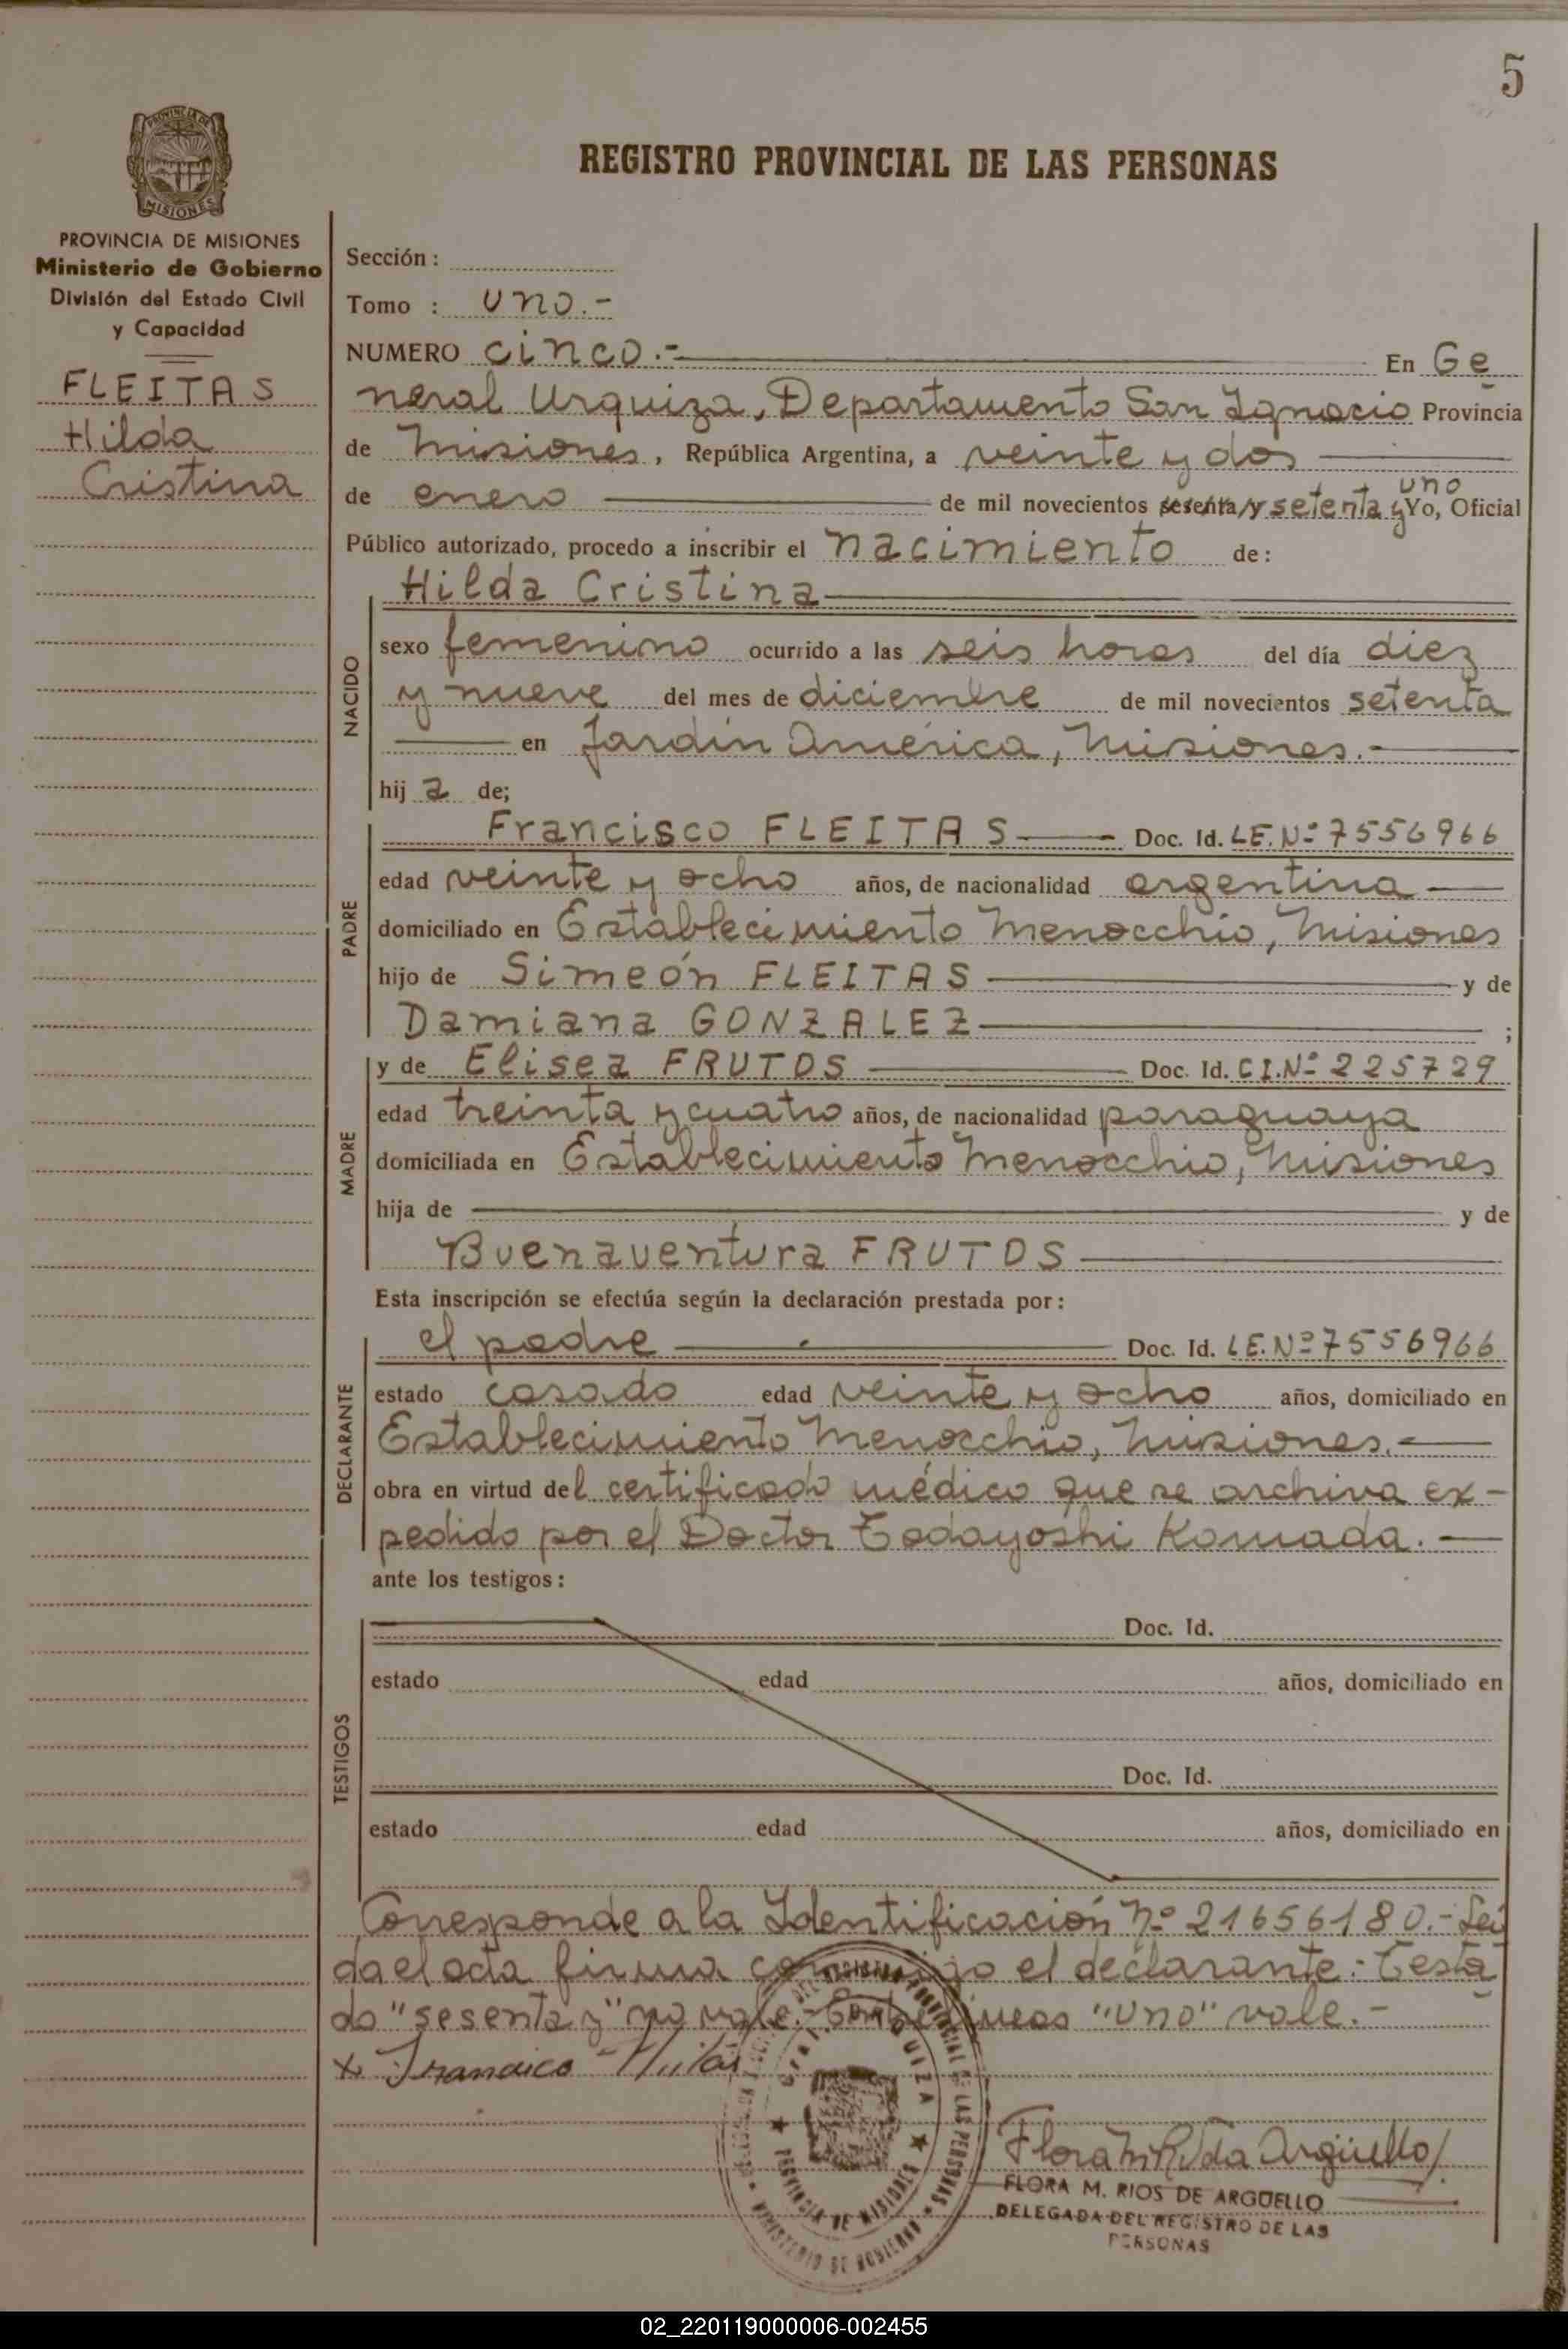 5
REGISTRO PROVINCIAL DE LAS PERSONAS
PROVINCIA DE MISIONES
PROVINCIA DE MISIONES
Ministerio de Gobierno
División del Estado Civil
y Capacidad
FLEITAS
Hilda
Cristina
Sección :
Tomo : uno.-
NUMERO cinco.- En Ge
neral Urquiza, Departamento San Ignacio Provincia
de Misiones, República Argentina, a veinte y dos
de enero de mil novecientos sesenta y setenta y uno Yo, Oficial
Público autorizado, procedo a inscribir el nacimiento de:
NACIDO
Hilda Cristina
sexo femenino ocurrido a las seis horas del día diez
y nueve del mes de diciembre de mil novecientos setenta
en Jardín América, Misiones.-
hij a de;
PADRE
Francisco FLEITAS Doc. Id. LE. Nº 7556966
edad veinte y ocho años, de nacionalidad argentina
domiciliado en Establecimiento Menocchio, Misiones
hijo de Simeón FLEITAS y de
Damiana GONZALEZ ;
MADRE
y de Elisea FRUTOS Doc. Id. C.I. Nº 225729
edad treinta y cuatro años, de nacionalidad paraguaya
domiciliada en Establecimiento Menocchio, Misiones
hija de y de
Buenaventura FRUTOS
Esta inscripción se efectúa según la declaración prestada por:
DECLARANTE
el padre Doc. Id. LE. Nº 7556966
estado casado edad veinte y ocho años, domiciliado en
Establecimiento Menocchio, Misiones.-
obra en virtud del certificado médico que se archiva ex-
pedido por el Doctor Todayoshi Komada.
ante los testigos:
TESTIGOS
Doc. Id.
estado edad años, domiciliado en
Doc. Id.
estado edad años, domiciliado en
Corresponde a la Identificación Nº 21656180.- Leí
da el acta firma conmigo el declarante.- Testa
do "sesenta y" no vale.- Entre líneas "uno" vale.-
x Francisco Fleitas
Gral. URQUIZA
PROVINCIA DE MISIONES
MINISTERIO DE GOBIERNO
Flora M. R. de Argüello
FLORA M. RIOS DE ARGÜELLO
DELEGADA DEL REGISTRO DE LAS
PERSONAS
02_220119000006-002455